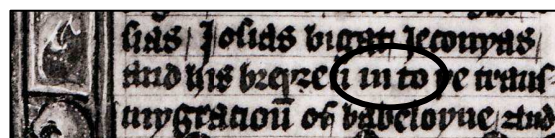 sias Josias bigat Jeconyas
and his breþren in to þe trans
mygracioū of babeloyne and